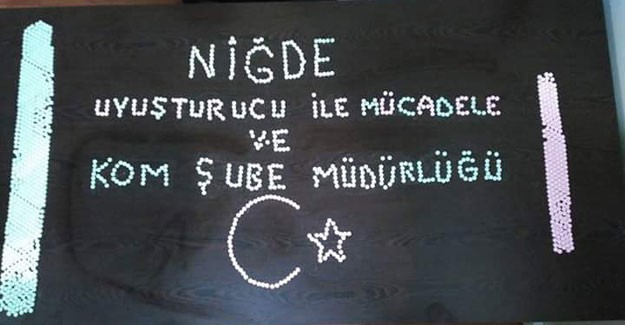 NİĞDE
UYUŞTURUCU İLE MÜCADELE
VE
KOM ŞUBE MÜDÜRLÜĞÜ